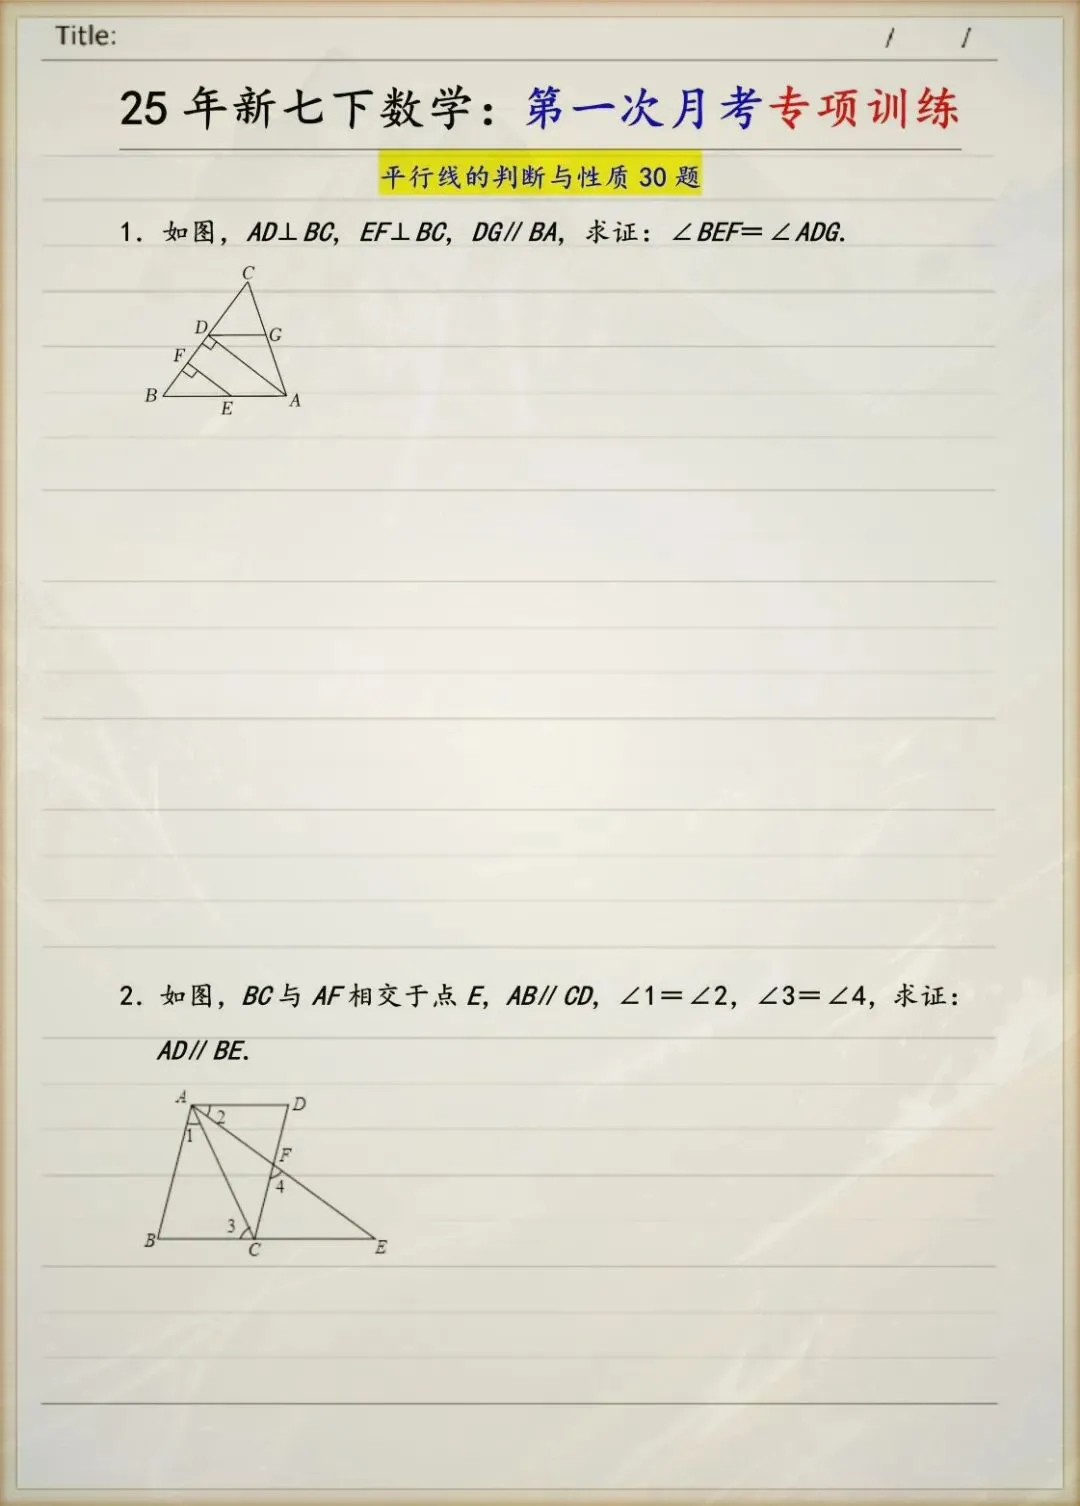 Title: / /
25 年新七下数学：第一次月考专项训练
平行线的判断与性质 30 题
1. 如图，AD⊥BC，EF⊥BC，DG∥BA，求证：∠BEF＝∠ADG.
C
D
G
F
B
E
A
2. 如图，BC与AF相交于点E，AB∥CD，∠1＝∠2，∠3＝∠4，求证：
AD∥BE.
A
D
2
1
F
4
3
B
C
E